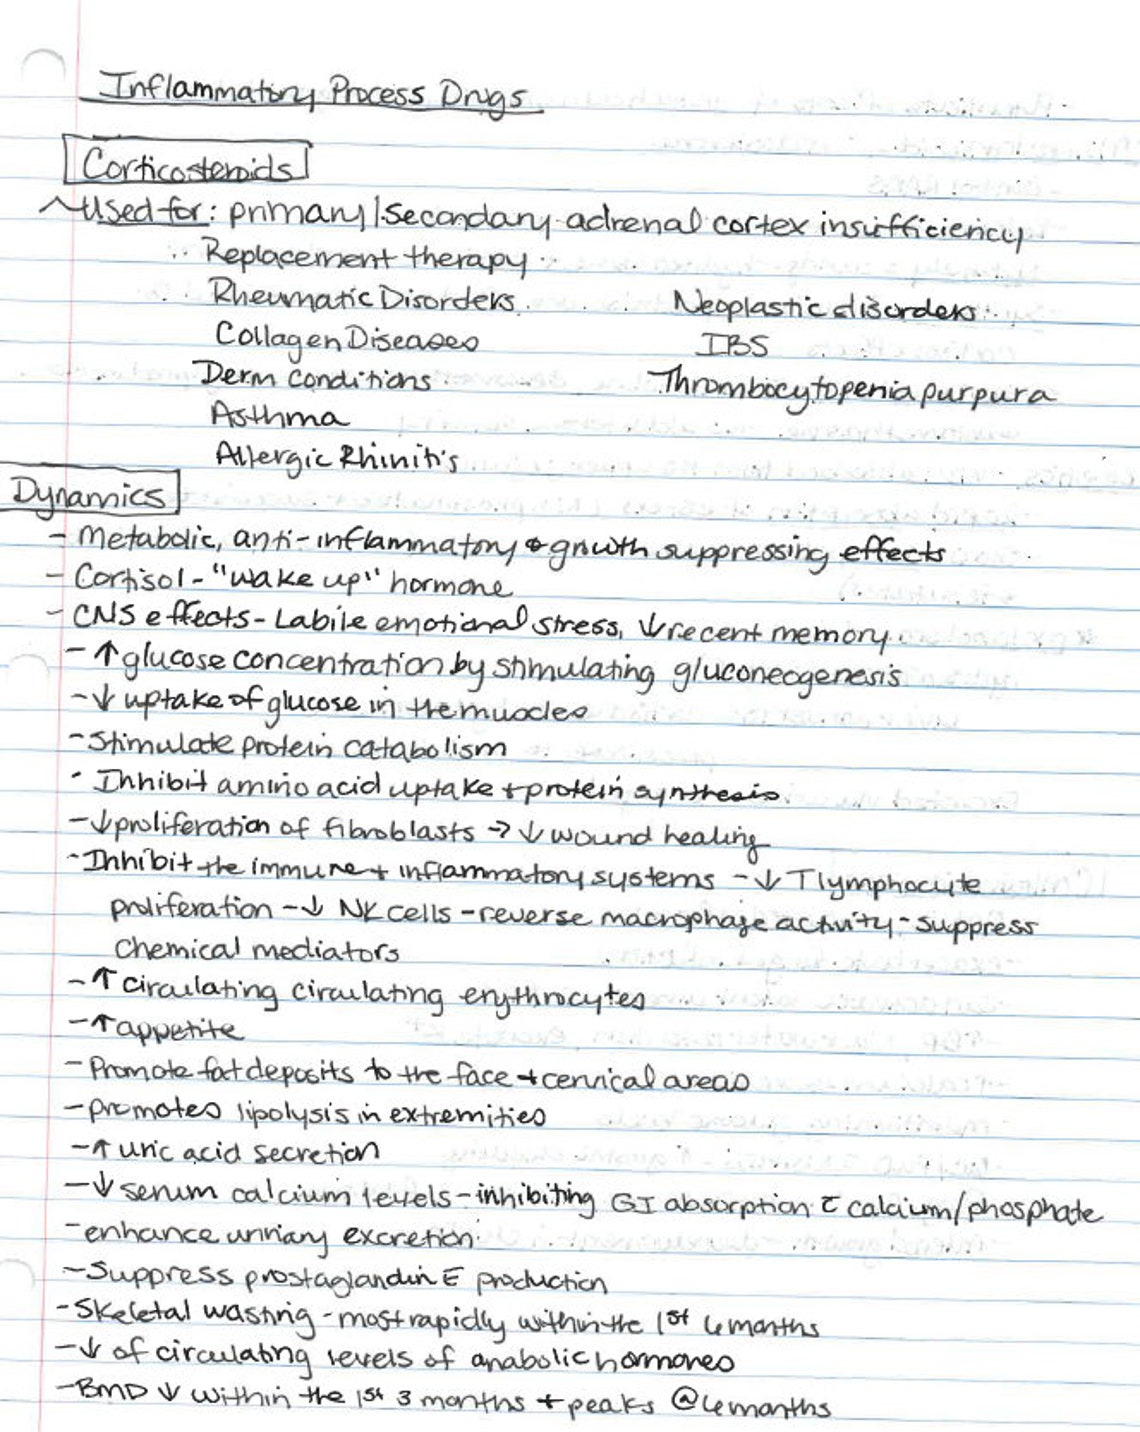 Inflammatory Process Drugs
Corticosteroids
Used for: primary/secondary adrenal cortex insufficiency
Replacement therapy
Rheumatic Disorders Neoplastic disorders
Collagen Diseases IBS
Derm conditions Thrombocytopenia purpura
Asthma
Allergic Rhinitis
Dynamics
- Metabolic, anti-inflammatory + growth suppressing effects
- Cortisol - "wake up" hormone
- CNS effects - Labile emotional stress, ↓ recent memory
- ↑ glucose concentration by stimulating gluconeogenesis
- ↓ uptake of glucose in the muscles
- Stimulate protein catabolism
- Inhibit amino acid uptake + protein synthesis
- ↓ proliferation of fibroblasts → ↓ wound healing
- Inhibit the immune + inflammatory systems - ↓ T lymphocyte
proliferation - ↓ NK cells - reverse macrophage activity - suppress
chemical mediators
- ↑ circulating circulating erythrocytes
- ↑ appetite
- Promote fat deposits to the face + cervical areas
- promotes lipolysis in extremities
- ↑ uric acid secretion
- ↓ serum calcium levels - inhibiting GI absorption c̄ calcium/phosphate
- enhance urinary excretion
- Suppress prostaglandin E production
- Skeletal wasting - most rapidly within the 1st 6 months
- ↓ of circulating levels of anabolic hormones
- BMD ↓ within the 1st 3 months + peaks @ 6 months